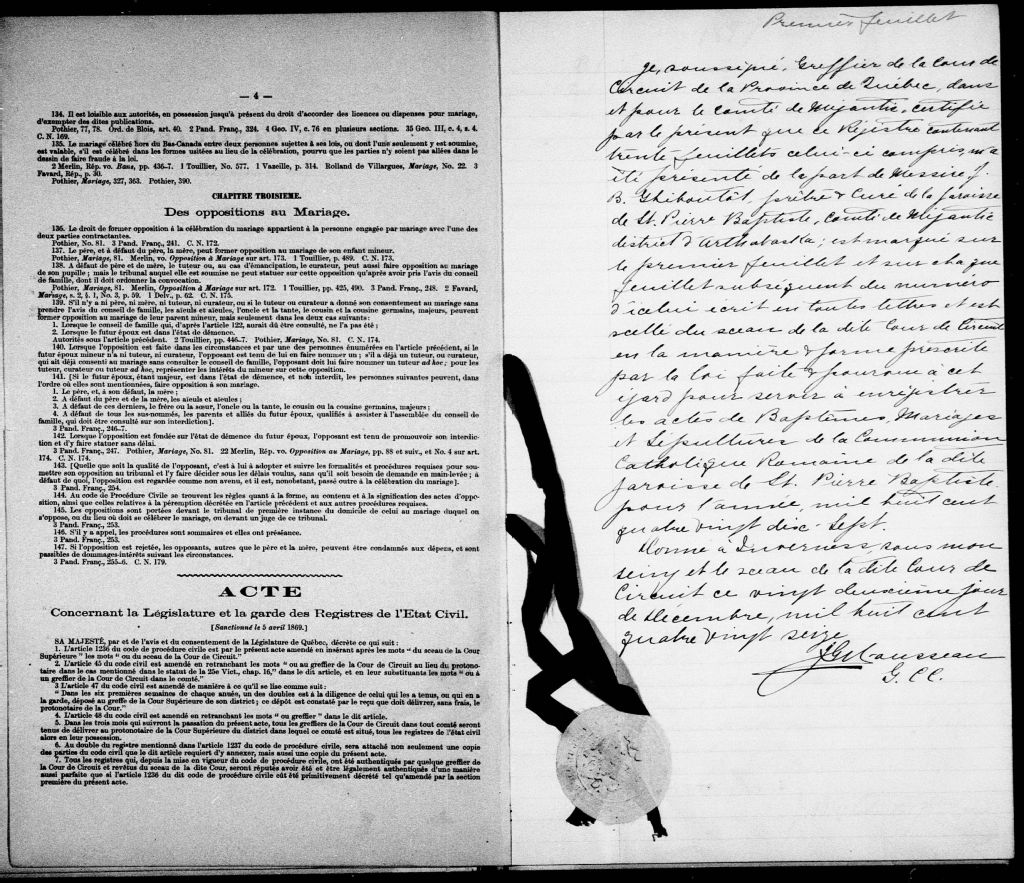 — 4 —
134. Il est loisible aux autorités, en possession jusqu'à présent du droit d'accorder des licences ou dispenses pour mariage,
d'exempter des dites publications.
Pothier, 77, 78. Ord. de Blois, art. 40. 2 Pand. Franç., 324. 4 Geo. IV, c. 76 en plusieurs sections. 35 Geo. III, c. 4, s. 4.
C. N. 169.
135. Le mariage célébré hors du Bas-Canada entre deux personnes sujettes à ses lois, ou dont l'une seulement y est soumise,
est valable, s'il est célébré dans les formes usitées au lieu de la célébration, pourvu que les parties n'y soient pas allées dans le
dessin de faire fraude à la loi.
2 Merlin, Rép. vo. Bans, pp. 436-7. 1 Touillier, No. 577. 1 Vazeille, p. 314. Rolland de Villargues, Mariage, No. 22. 3
Favard, Rép., p. 30.
Pothier, Mariage, 327, 363. Pothier, 390.
CHAPITRE TROISIEME.
Des oppositions au Mariage.
136. Le droit de former opposition à la célébration du mariage appartient à la personne engagée par mariage avec l'une des
deux parties contractantes.
Pothier, No. 81. 3 Pand. Franç., 241. C. N. 172.
137. Le père, et à défaut du père, la mère, peut former opposition au mariage de son enfant mineur.
Pothier, Mariage, 81. Merlin, vo. Opposition à Mariage sur art. 173. 1 Touillier, p. 489. C. N. 173.
138. A défaut de père et de mère, le tuteur ou, au cas d'émancipation, le curateur, peut aussi faire opposition au mariage
de son pupille ; mais le tribunal auquel elle est soumine ne peut statuer sur cette opposition qu'après avoir pris l'avis du conseil
de famille, dont il doit ordonner la convocation.
Pothier, Mariage, 81. Merlin, Opposition à Mariage sur art. 172. 1 Touillier, pp. 425, 490. 3 Pand. Franç., 248. 2 Favard,
Mariage, s. 2, §. 1, No. 3, p. 59. 1 Delv., p. 62. C. N. 175.
139. S'il n'y a ni père, ni mère, ni tuteur, ni curateur, ou si le tuteur ou curateur a donné son consentement au mariage sans
prendre l'avis du conseil de famille, les aïeuls et aïeules, l'oncle et la tante, le cousin et la cousine germains, majeurs, peuvent
former opposition au mariage de leur parent mineur, mais seulement dans les deux cas suivants :
1. Lorsque le conseil de famille qui, d'après l'article 122, aurait dû être consulté, ne l'a pas été ;
2. Lorsque le futur époux est dans l'état de démence.
Autorités sous l'article précédent. 2 Touillier, pp. 446-7. Pothier, Mariage, No. 81. C. N. 174.
140. Lorsque l'opposition est faite dans les circonstances et par une des personnes énumérées en l'article précédent, si le
futur époux mineur n'a ni tuteur, ni curateur, l'opposant est tenu de lui en faire nommer un ; s'il a déjà un tuteur, ou curateur,
qui ait déjà consenti au mariage sans consulter le conseil de famille, l'opposant doit lui faire nommer un tuteur ad hoc ; pour les
tuteur, curateur ou tuteur ad hoc, représenter les intérêts du mineur sur cette opposition.
141. [Si le futur époux, étant majeur, est dans l'état de démence, et non interdit, les personnes suivantes peuvent, dans
l'ordre où elles sont mentionnées, faire opposition à son mariage.
1. Le père, et, à son défaut, la mère ;
2. A défaut du père et de la mère, les aïeuls et aïeules ;
3. A défaut de ces derniers, le frère ou la sœur, l'oncle ou la tante, le cousin ou la cousine germains, majeurs ;
4. A défaut de tous les sus-nommés, les parents et alliés du futur époux, qualifiés à assister à l'assemblée du conseil de
famille, qui doit être consulté sur son interdiction].
3 Pand. Franç., 246-7.
142. Lorsque l'opposition est fondée sur l'état de démence du futur époux, l'opposant est tenu de promouvoir son interdic-
tion et d'y faire statuer sans délai.
3 Pand. Franç., 247. Pothier, Mariage, No. 81. 22 Merlin, Rép. vo. Opposition au Mariage, pp. 88 et suiv., et No. 4 sur art.
174. C. N. 174.
143. [Quelle que soit la qualité de l'opposant, c'est à lui à adopter et suivre les formalités et procédures requises pour sou-
mettre son opposition au tribunal et l'y faire décider sous les délais voulus, sans qu'il soit besoin de demande en main-levée ; à
défaut de quoi, l'opposition est regardée comme non avenu, et il est, nonobstant, passé outre à la célébration du mariage].
3 Pand. Franç., 254.
144. Au code de Procédure Civile se trouvent les règles quant à la forme, au contenu et à la signification des actes d'oppo-
sition, ainsi que celles relatives à la péremption décrétée en l'article précédent et aux autres procédures requises.
145. Les oppositions sont portées devant le tribunal de première instance du domicile de celui au mariage duquel on
s'oppose, ou du lieu où doit se célébrer le mariage, ou devant un juge de ce tribunal.
3 Pand. Franç., 253.
146. S'il y a appel, les procédures sont sommaires et elles ont préséance.
3 Pand. Franç., 253.
147. Si l'opposition est rejetée, les opposants, autres que le père et la mère, peuvent être condamnés aux dépens, et sont
passibles de dommages-intérêts suivant les circonstances.
3 Pand. Franç., 255-6. C. N. 179.
ACTE
Concernant la Législature et la garde des Registres de l'Etat Civil.
[Sanctionné le 5 avril 1869.]
SA MAJESTÉ, par et de l'avis et du consentement de la Législature de Québec, décrète ce qui suit :
1. L'article 1236 du code de procédure civile est par le présent acte amendé en insérant après les mots " du sceau de la Cour
Supérieure " les mots " ou du sceau de la Cour de Circuit."
2. L'article 45 du code civil est amendé en retranchant les mots " ou au greffier de la Cour de Circuit au lieu du protono-
taire dans le cas mentionné dans le statut de la 25e Vict., chap. 16," dans le dit article, et en leur substituants les mots " ou à
un greffier de la Cour de Circuit dans le comté."
3 L'article 47 du code civil est amendé de manière à ce qu'il se lise comme suit :
" Dans les six premières semaines de chaque année, un des doubles est à la diligence de celui qui les a tenus, ou qui en a
la garde, déposé au greffe de la Cour Supérieure de son district ; ce dépôt est constaté par le reçu que doit délivrer, sans frais, le
protonotaire de la Cour."
4. L'article 48 du code civil est amendé en retranchant les mots " ou greffier " dans le dit article.
5. Dans les trois mois qui suivront la passation du présent acte, tous les greffiers de la Cour de Circuit dans tout comté seront
tenus de délivrer au protonotaire de la Cour Supérieure du district dans lequel ce comté est situé, tous les registres de l'état civil
alors en leur possession.
6. Au double du registre mentionné dans l'article 1237 du code de procédure civile, sera attaché non seulement une copie
des parties du code civil que le dit article requiert d'y annexer, mais aussi une copie du présent acte.
7. Tous les registres qui, depuis la mise en vigueur du code de procédure civile, ont été authentiqués par quelque greffier de
la Cour de Circuit et revêtus du sceau de la dite Cour, seront réputés avoir été et être légalement authentiqués d'une manière
aussi parfaite que si l'article 1236 du dit code de procédure civile eût été primitivement décrété tel qu'amendé par la section
première du présent acte.
Premier feuillet
Je, soussigné, Greffier de la Cour de
Circuit de la Province de Québec, dans
et pour le Comté de Mégantic, certifie
par le présent que ce Régistre contenant
trente feuillets celui-ci compris, m'a
été présenté de la part de Messire J.
B. Ghiboutôt, prêtre & Curé de la paroisse
de St. Pierre Baptiste, Comté de Mégantic
district d'Arthabaska ; est marqué sur
le premier feuillet et sur chaque
feuillet subséquent du numéro
d'icelui écrit en toutes lettres et est
scellé du sceau de la dite Cour de Circuit
en la manière & forme prescrite
par la loi faite & pourvu à cet
égard pour servir à enrégistrer
les actes de Baptêmes, Mariages
et Sépultures de la Communion
Catholique Romaine de la dite
paroisse de St. Pierre Baptiste
pour l'année, mil huit cent
quatre vingt disc-sept.
Donné à Inverness, sous mon
seing et le sceau de la dite Cour de
Circuit ce vingt deuxième jour
de Décembre, mil huit cent
quatre vingt seize
Mousseau
G. C C.